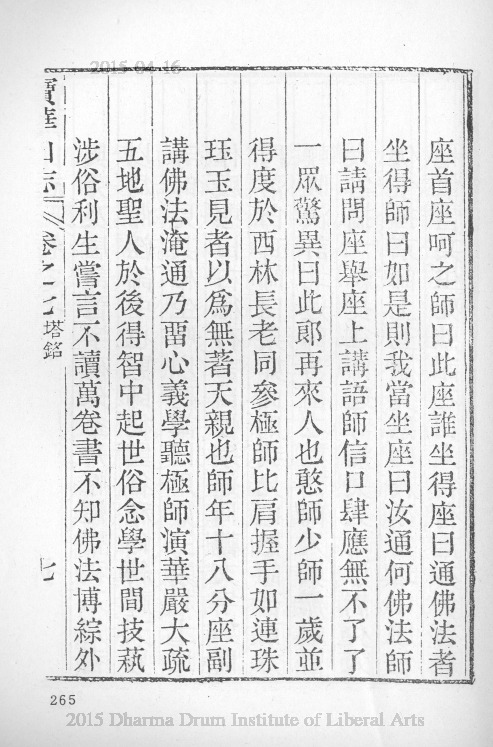 2015-04-16
座首座呵之師曰此座誰坐得座曰通佛法者
坐得師曰如是則我當坐座曰汝通何佛法師
曰請問座舉座上講語師信口肆應無不了了
一眾驚異曰此郎再來人也憨師少師一歲並
得度於西林長老同參極師比肩握手如連珠
珏玉見者以為無著天親也師年十八分座副
講佛法淹通乃畱心義學聽極師演華嚴大疏
五地聖人於後得智中起世俗念學世間技蓺
涉俗利生嘗言不讀萬卷書不知佛法博綜外
寶華山志 卷之七 塔銘 七
265
2015 Dharma Drum Institute of Liberal Arts